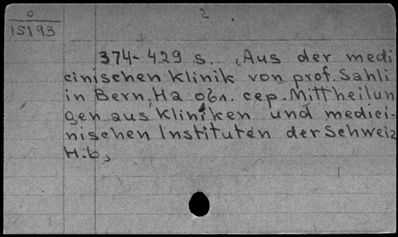 0
15193
2
374-429 s. (Aus der medi
cinischen Klinik von prof. Sahli
in Bern, На обл. сер. Mittheilun
gen aus Kliniken und medici-
nischen Instituten der Schweiz
H.6,